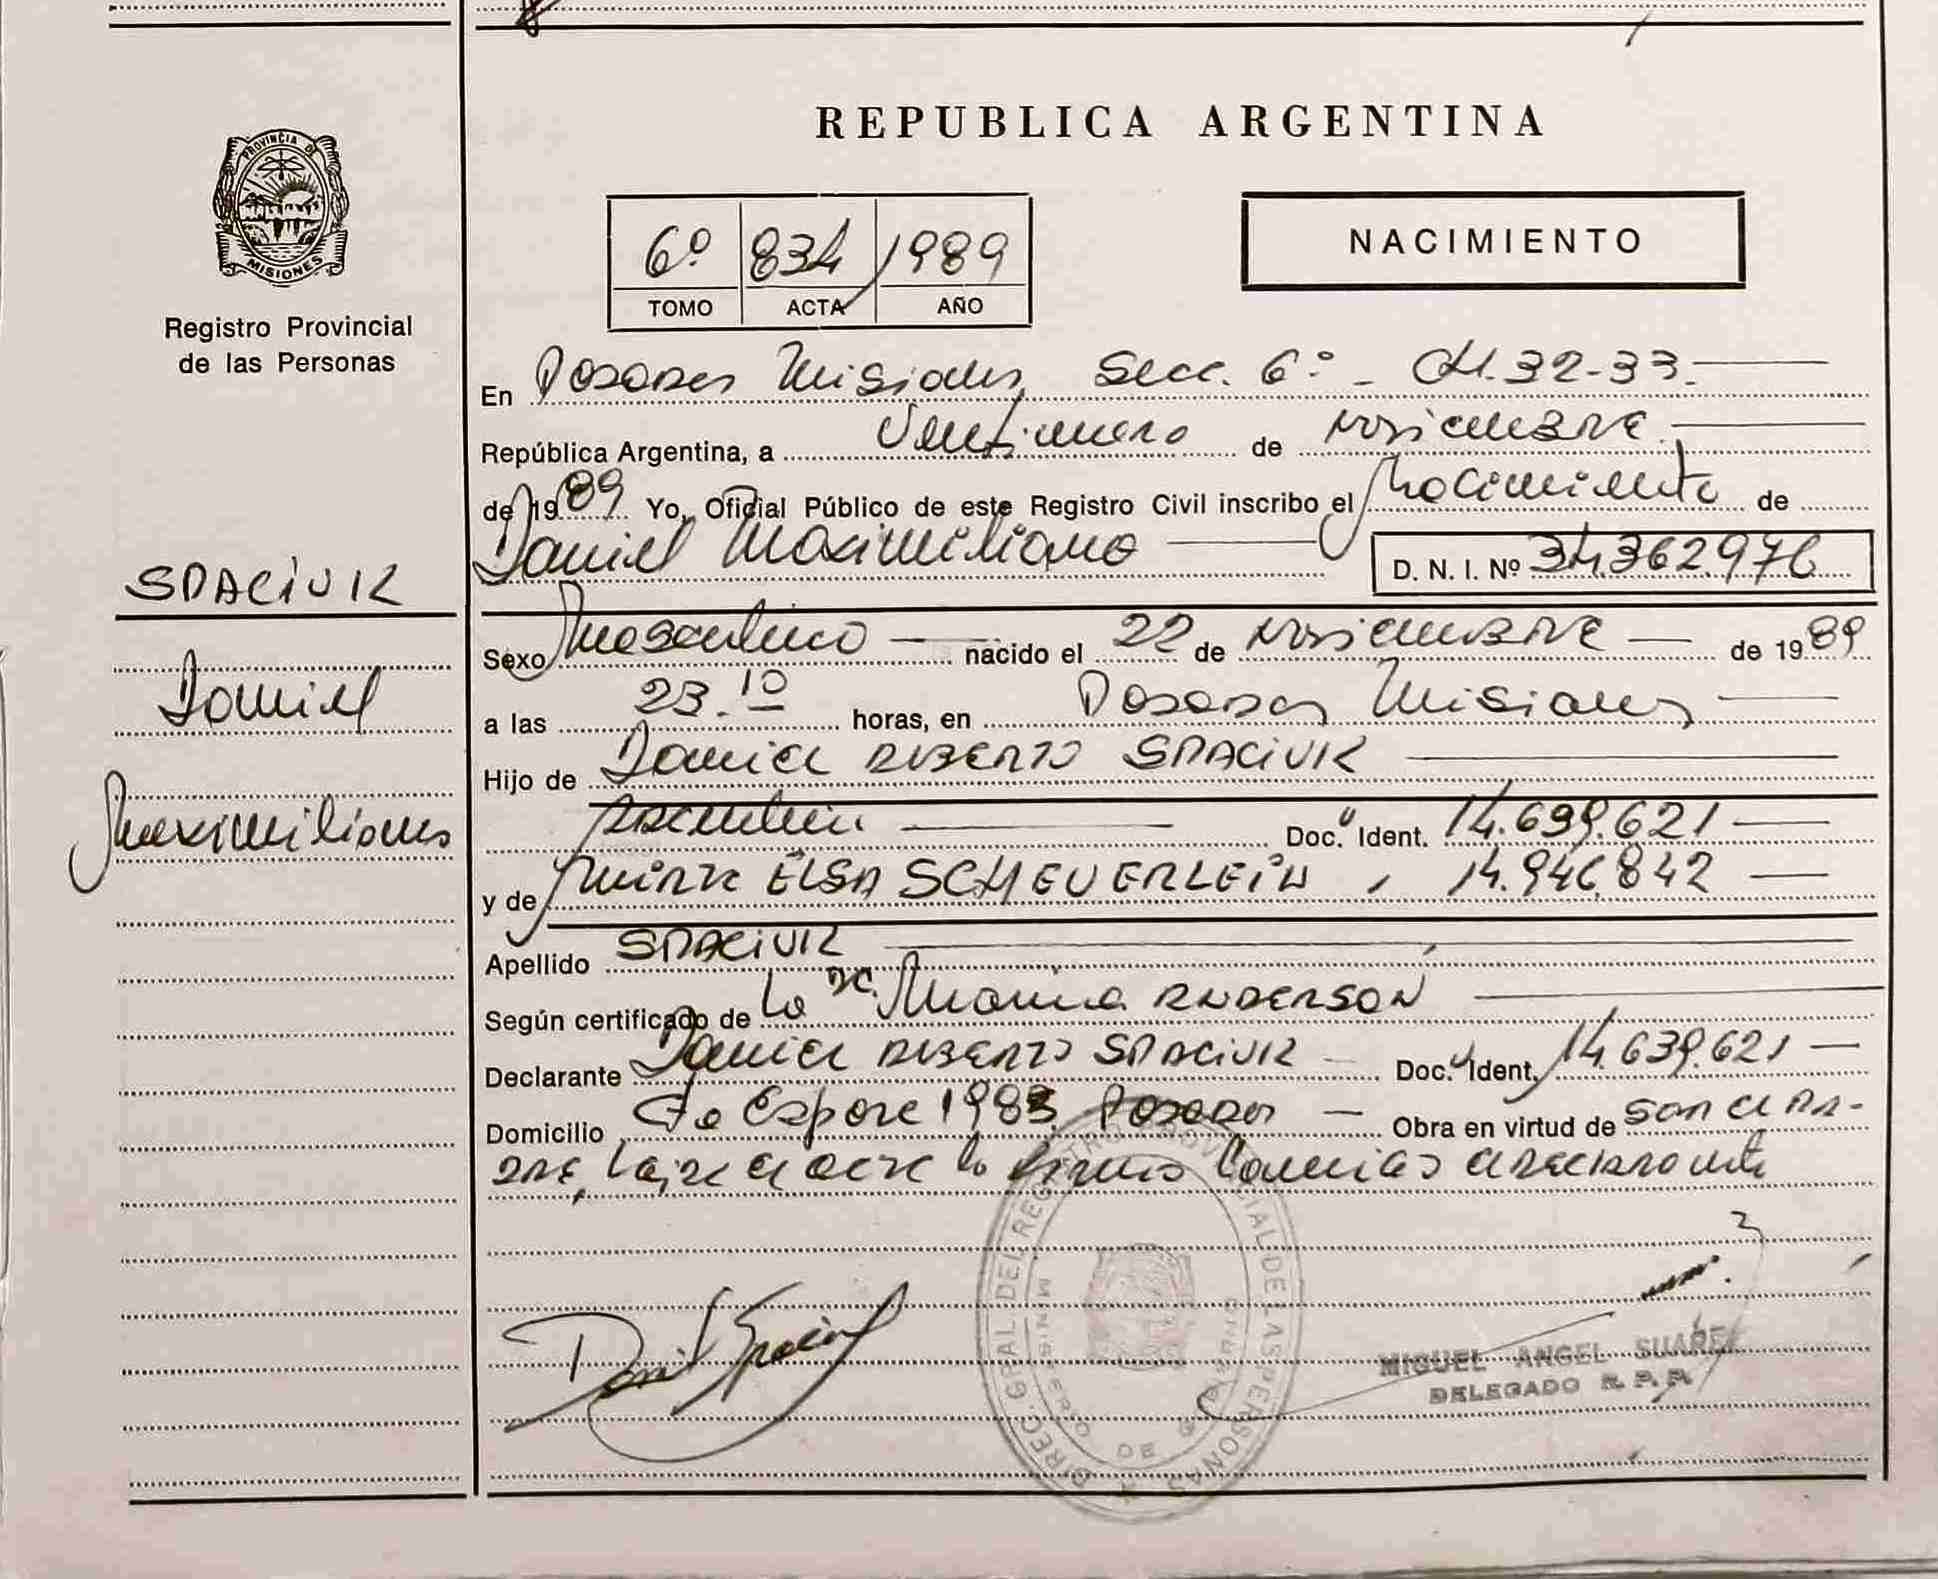 REPUBLICA ARGENTINA
PROVINCIA DE
MISIONES
Registro Provincial
de las Personas
6º 834 1989
TOMO ACTA AÑO
NACIMIENTO
En Posadas Misiones, Secc. 6° - Ch. 32-33.
República Argentina, a Veintinueve de noviembre.
de 1989 Yo, Oficial Público de este Registro Civil inscribo el Nacimiento de
Daniel Maximiliano D. N. I. Nº 34.362.976
SPACIUK
Daniel
Maximiliano
Sexo Masculino nacido el 22 de noviembre de 1989
a las 23.10 horas, en Posadas Misiones
Hijo de Daniel Roberto SPACIUK
Argentino Doc. Ident. 14.639.621
y de ELSA SCHEUERLEIN, 14.946.842
Apellido SPACIUK
Según certificado de la Dc. Mónica ANDERSON
Declarante Daniel Roberto SPACIUK Doc. Ident. 14.639.621
Domicilio Posadas Obra en virtud de ser el pa-
dre, el acta la firma el declarante
DIREC. GRAL. DEL REGISTRO PROVINCIAL DE LAS PERSONAS
MINISTERIO DE GOBIERNO
MIGUEL ANGEL SUAREZ
DELEGADO R. P. P.